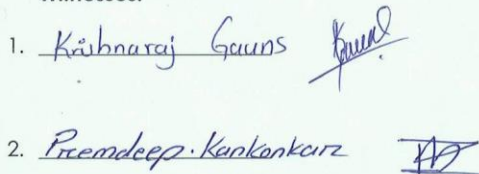 1. Krishnaraj Gauns
2. Premdeep. Kankonkar